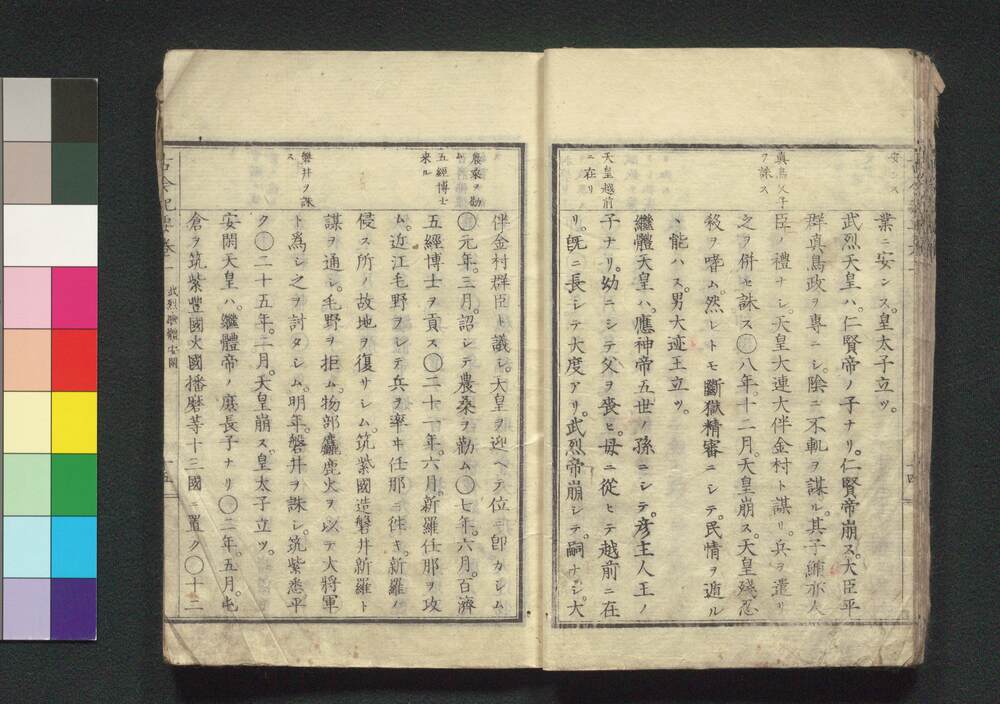 業ニ安ンス。皇太子立ツ。
武烈天皇ハ。仁賢帝ノ子ナリ。仁賢帝崩ス。大臣平
群真鳥政ヲ專ニシ。陰ニ不軌ヲ謀ル。其子鮪亦人
臣ノ禮ナシ。天皇大連大伴金村ト謀リ。兵ヲ遣リ
之ヲ併セ誅ス〇八年。十二月。天皇崩ス。天皇殘忍
殺ヲ嗜ム。然レトモ斷獄精審ニシテ。民情ヲ遁ル
丶能ハス。男大迹王立ツ。
繼體天皇ハ。應神帝五世ノ孫ニシテ。彦主人王ノ
子ナリ。幼ニシテ父ヲ喪ヒ。母ニ從ヒテ越前ニ在
リ。既ニ長シテ大度アリ。武烈帝崩シテ。嗣ナシ。大
真鳥父子
ヲ誅ス
天皇越前
ニ在リ
十四
伴金村群臣ト議シ。天皇ヲ迎ヘテ位ニ卽カシム
〇元年。三月。詔シテ農桑ヲ勸ム〇七年。六月。百濟
五經博士ヲ貢ス〇二十一年。六月。新羅任那ヲ攻
ム。近江毛野ヲシテ兵ヲ率ヰ任那ニ徃キ。新羅ノ
侵ス所ノ故地ヲ復サシム。筑紫國造磐井新羅ト
謀ヲ通シ。毛野ヲ拒ム。物部麤鹿火ヲ以テ大將軍
ト爲シ之ヲ討タシム。明年。磐井ヲ誅シ。筑紫悉平
ク〇二十五年。二月。天皇崩ス。皇太子立ツ。
安閑天皇ハ。繼體帝ノ庶長子ナリ〇二年。五月。屯
倉ヲ筑紫豐國火國播磨等十三國ニ置ク〇十二
農桑ヲ勸
ム
五經博士
來ル
磐井ヲ誅
ス
武烈 繼體 安閑
十五